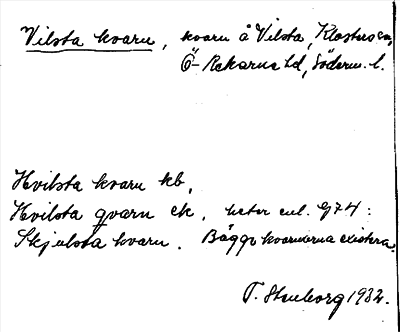 Vilsta kvarn, kvarn å Vilsta, Klosters sn,
Ö-Rekarne hd, Söderm. l.
Hvilsta kvarn kb,
Hvilsta qvarn ek, heter enl. G74:
Skjulsta kvarn. Bägge kvarnarna existera.
T. Stenborg 1932.